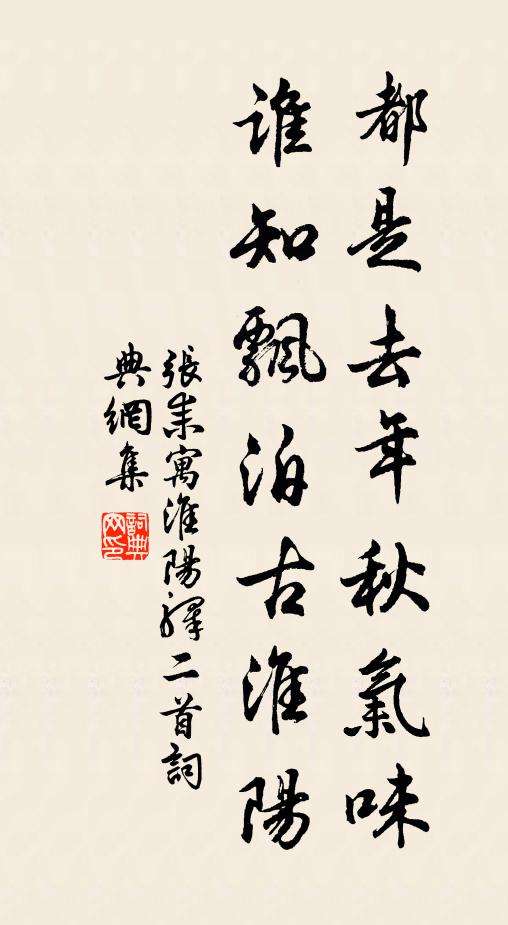 都是去年秋氣味
誰知飄泊古淮陽
張耒寓淮陽驛二首詞
典網集
詞典
网印